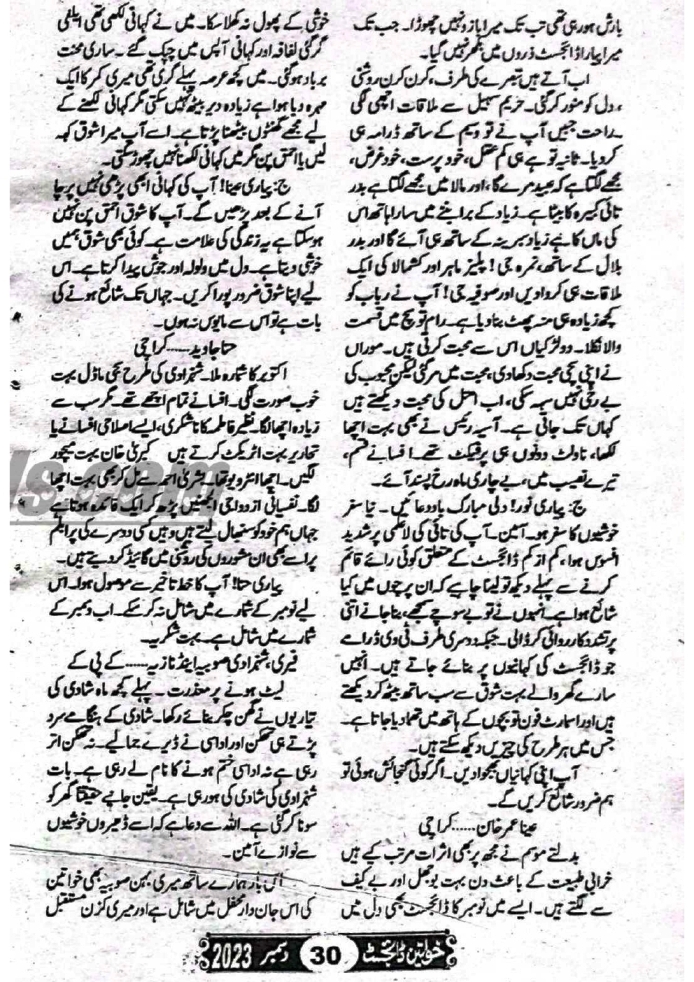 بارش ہو رہی تھی تب تک میرا بازو نہیں چھوڑا۔ جب تک
میرا پیارا ڈائجسٹ ذروں میں بکھر نہیں گیا۔
اب آتے ہیں تبصرے کی طرف، کرن کرن روشنی
، دل کو منور کر گئی۔ حریم سہیل سے ملاقات اچھی لگی
۔ راحت جبیں آپ نے تو وسیم کے ساتھ ڈرامہ ہی
کر دیا۔ ثانیہ تو ہے ہی کم عقل، خود پرست، خود غرض،
مجھے لگتا ہے کہ عبید مرے گا، اور مالا میں مجھے لگتا ہے بدر
تائی کبیرہ کا بیٹا ہے۔ زیاد کے برا بننے میں سارا ہاتھ اس
کی ماں کا ہے زیاد سبرینہ کے ساتھ ہی آئے گا اور بدر
بلال کے ساتھ، نمرہ جی! پلیز ماہر اور کشمالا کی ایک
ملاقات ہی کروا دیں اور صوفیہ جی! آپ نے رباب کو
کچھ زیادہ ہی منہ پھٹ بنا دیا ہے۔ رام تو سچ میں قسمت
والا نکلا۔ دو لڑکیاں اس سے محبت کرتی ہیں۔ موراں
نے اپنی سچی محبت دکھا دی، محبت میں مر گئی لیکن محبوب کی
بے رخی نہیں سہہ سکی، اب امتل کی محبت دیکھتے ہیں
کہاں تک جاتی ہے۔ آسیہ رئیس نے بھی بہت اچھا
لکھا، ناولٹ دونوں ہی پرفیکٹ تھے۔ افسانے قسم،
تیرے نصیب میں، بے چاری ماہ رخ پسند آئے۔
ج: پیاری نور! دلی مبارک باد و دعائیں۔ نیا سفر
خوشیوں کا سفر ہو۔ آمین۔ آپ کی تائی کی لاعلمی پر شدید
افسوس ہوا، کم از کم ڈائجسٹ کے متعلق کوئی رائے قائم
کرنے سے پہلے دیکھ تو لینا چاہیے کہ ان پرچوں میں کیا
شائع ہوا ہے۔ انہوں نے تو بے سوچے سمجھے، بنا جانے اتنی
پر تشدد کارروائی کر ڈالی۔ جبکہ دوسری طرف ٹی وی ڈرامے
جو ڈائجسٹ کی کہانیوں پر بنائے جاتے ہیں۔ انہیں
سارے گھر والے بہت شوق سے سب ساتھ بیٹھ کر دیکھتے
ہیں اور اسمارٹ فون تو بچوں کے ہاتھ میں تھما دیا جاتا ہے۔
جس میں ہر طرح کی چیزیں دیکھ سکتے ہیں۔
آپ اپنی کہانیاں بھجوا دیں۔ اگر کوئی گنجائش ہوئی تو
ہم ضرور شائع کریں گے۔
عینا عمر خان۔۔۔۔۔۔ کراچی
بدلتے موسم نے مجھ پر بھی اثرات مرتب کیے ہیں
خرابی طبیعت کے باعث دن بہت بوجھل اور بے کیف
سے لگتے ہیں۔ ایسے میں نومبر کا ڈائجسٹ بھی دل میں
خوشی کے پھول نہ کھلا سکا۔ میں نے کہانی لکھی تھی ایلفی
گر گئی لفافہ اور کہانی آپس میں چپک گئے۔ ساری محنت
برباد ہو گئی۔ میں کچھ عرصہ پہلے گری تھی میری کمر کا ایک
مہرہ دبا ہوا ہے زیادہ دیر بیٹھ نہیں سکتی مگر کہانی لکھنے کے
لیے مجھے گھنٹوں بیٹھنا پڑتا ہے۔ اسے آپ میرا شوق کہہ
لیں یا احمق پن مگر میں کہانی لکھنا نہیں چھوڑ سکتی۔
ج: پیاری عینا! آپ کی کہانی ابھی پڑھی نہیں پرچا
آنے کے بعد پڑھیں گے۔ آپ کا شوق احمق پن نہیں
ہو سکتا ہے یہ زندگی کی علامت ہے۔ کوئی بھی شوق ہمیں
خوشی دیتا ہے۔ دل میں ولولہ اور جوش پیدا کرتا ہے۔ اس
لیے اپنا شوق ضرور پورا کریں۔ جہاں تک شائع ہونے کی
بات ہے تو اس سے مایوس نہ ہوں۔
حنا جاوید۔۔۔۔۔۔ کراچی
اکتوبر کا شمارہ ملا۔ شہزادی کی طرح سجی ماڈل بہت
خوب صورت لگی۔ افسانے تمام اچھے تھے۔ مگر سب سے
زیادہ اچھا لگا۔ نظیر فاطمہ کا ناشکری، ایسے اصلاحی افسانے یا
تحاریر بہت اٹریکٹ کرتے ہیں کبریٰ خان بہت میچور
لگیں۔ اچھا انٹرویو تھا۔ بشریٰ احمد سے مل کر بھی بہت اچھا
لگا۔ نفسیاتی ازدواجی الجھنیں پڑھ کر ایک فائدہ ہوتا ہے
جہاں ہم خود کو سنبھال لیتے ہیں وہیں کسی دوسرے کی پرابلم
پر اسے بھی ان مشوروں کی روشنی میں گائیڈ کر دیتے ہیں۔
پیاری حنا! آپ کا خط تاخیر سے موصول ہوا۔ اس
لیے نومبر کے شمارے میں شامل نہ کر سکے۔ اب دسمبر کے
شمارے میں شامل ہے۔ بہت شکریہ۔
فیری، شہزادی صوبیہ اینڈ نازیہ۔۔۔۔۔۔ کے پی کے
لیٹ ہونے پر معذرت۔ پہلے کچھ ماہ شادی کی
تیاریوں نے گھن چکر بنائے رکھا۔ شادی کے ہنگامے سرد
پڑتے ہی تھکن اور اداسی نے ڈیرے جما لیے۔ نہ تھکن اتر
رہی ہے نہ اداسی ختم ہونے کا نام لے رہی ہے۔ بات
شہزادی کی شادی کی ہو رہی ہے۔ یقین جانیے حقیقتاً گھر کو
سونا کر گئی ہے۔ اللہ سے دعا ہے کہ اسے ڈھیروں خوشیوں
سے نوازے آمین۔
اس بار ہمارے ساتھ میری بہن صوبیہ بھی خواتین
کی اس جان دار محفل میں شامل ہے اور میری کزن مستقبل
خواتین ڈائجسٹ 30 دسمبر 2023